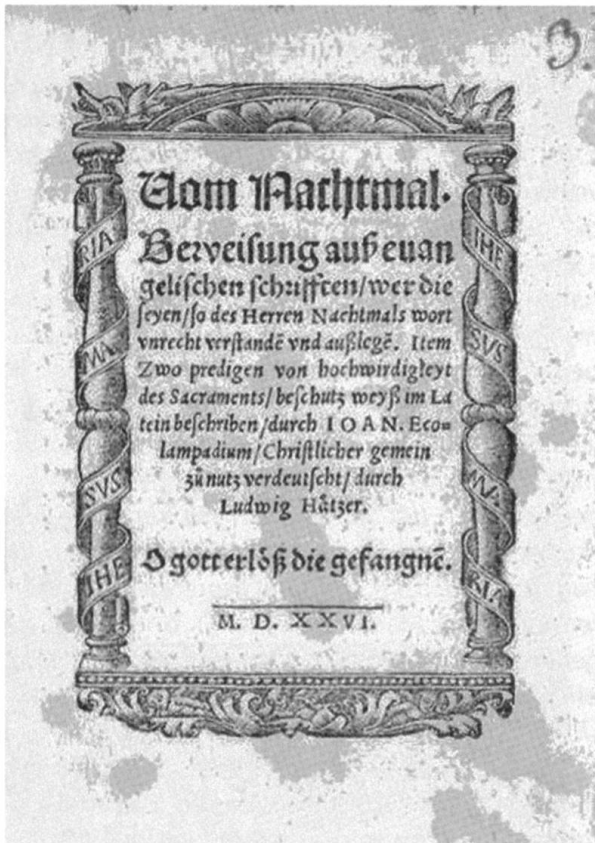 3.
Vom Nachtmal.
Berveisung auß euan
gelischen schrifften/wer die
seyen/so des Herren Nachtmals wort
vnrecht verstandē vnd außlegē. Item
Zwo predigen von hochwirdigkeyt
des Sacraments/beschutz weyß im La
tein beschriben/durch IOAN. Eco=
lampadium/Christlicher gemein
zů nutz verdeutscht/durch
Ludwig Håtzer.
O gott erlöß die gefangnē.
M. D. XXVI.
RIA
MA
SVS
IHE
IHE
SVS
MA
RIA